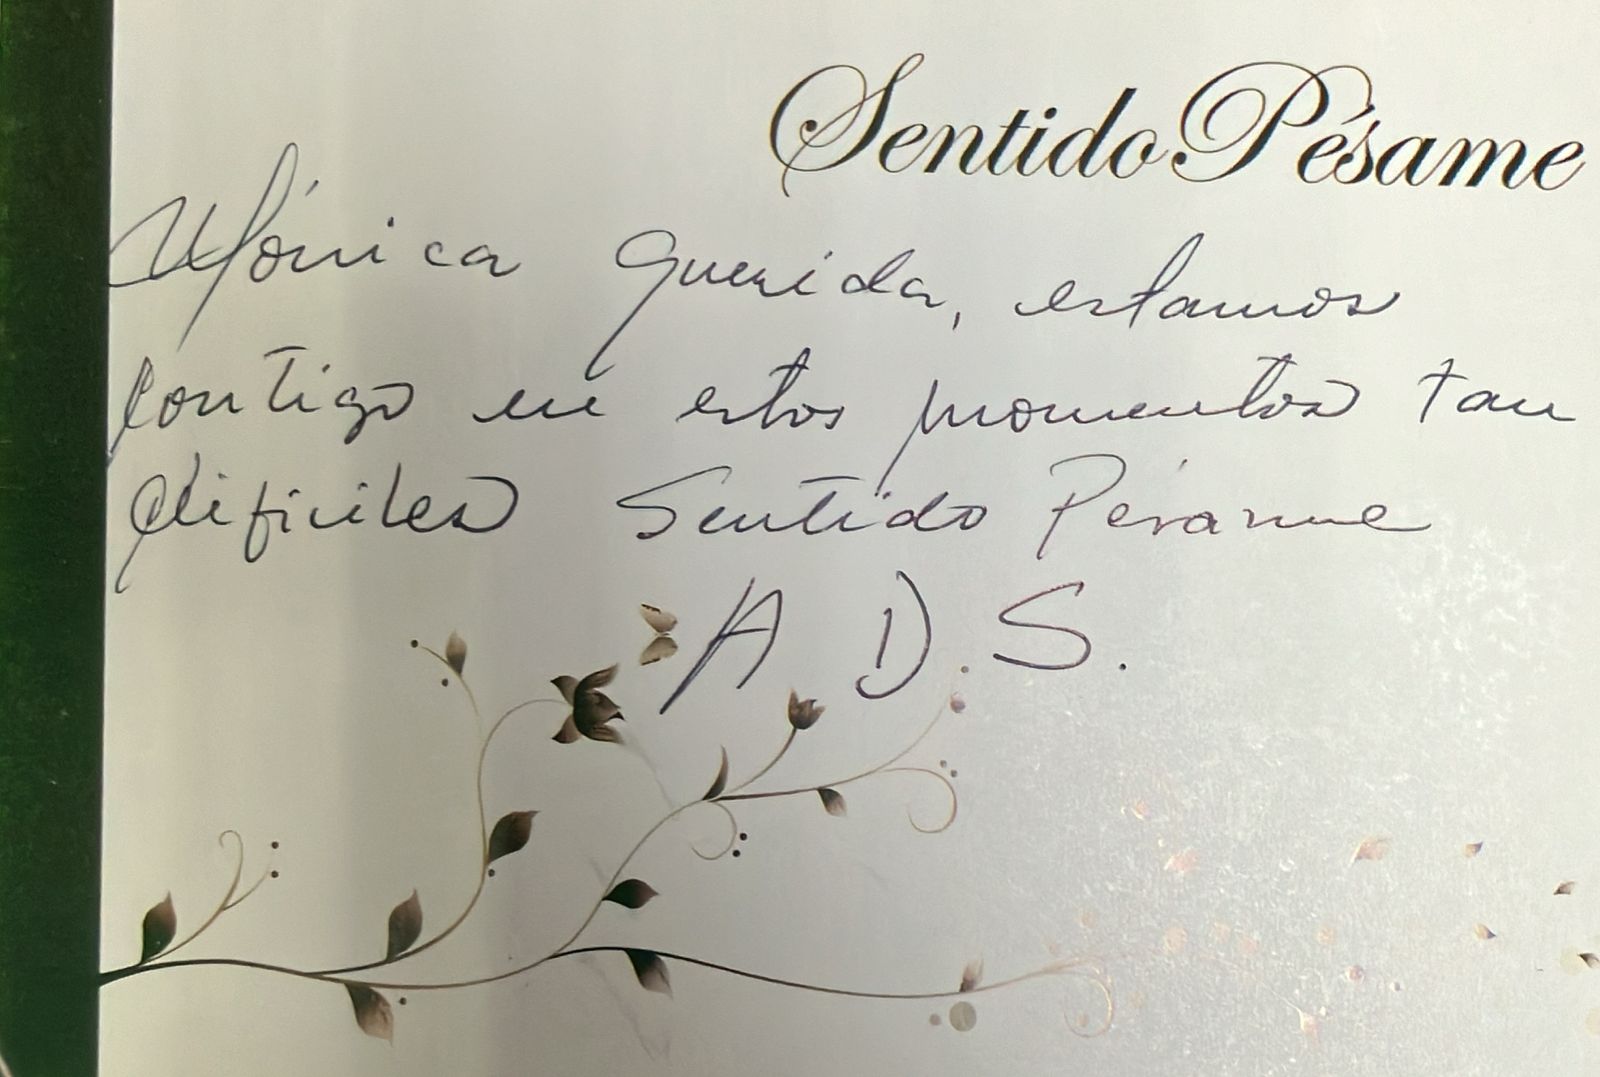 Sentido Pésame
Mónica querida, estamos
contigo en estos momentos tan
dificiles Sentido Pésame
A D. S.